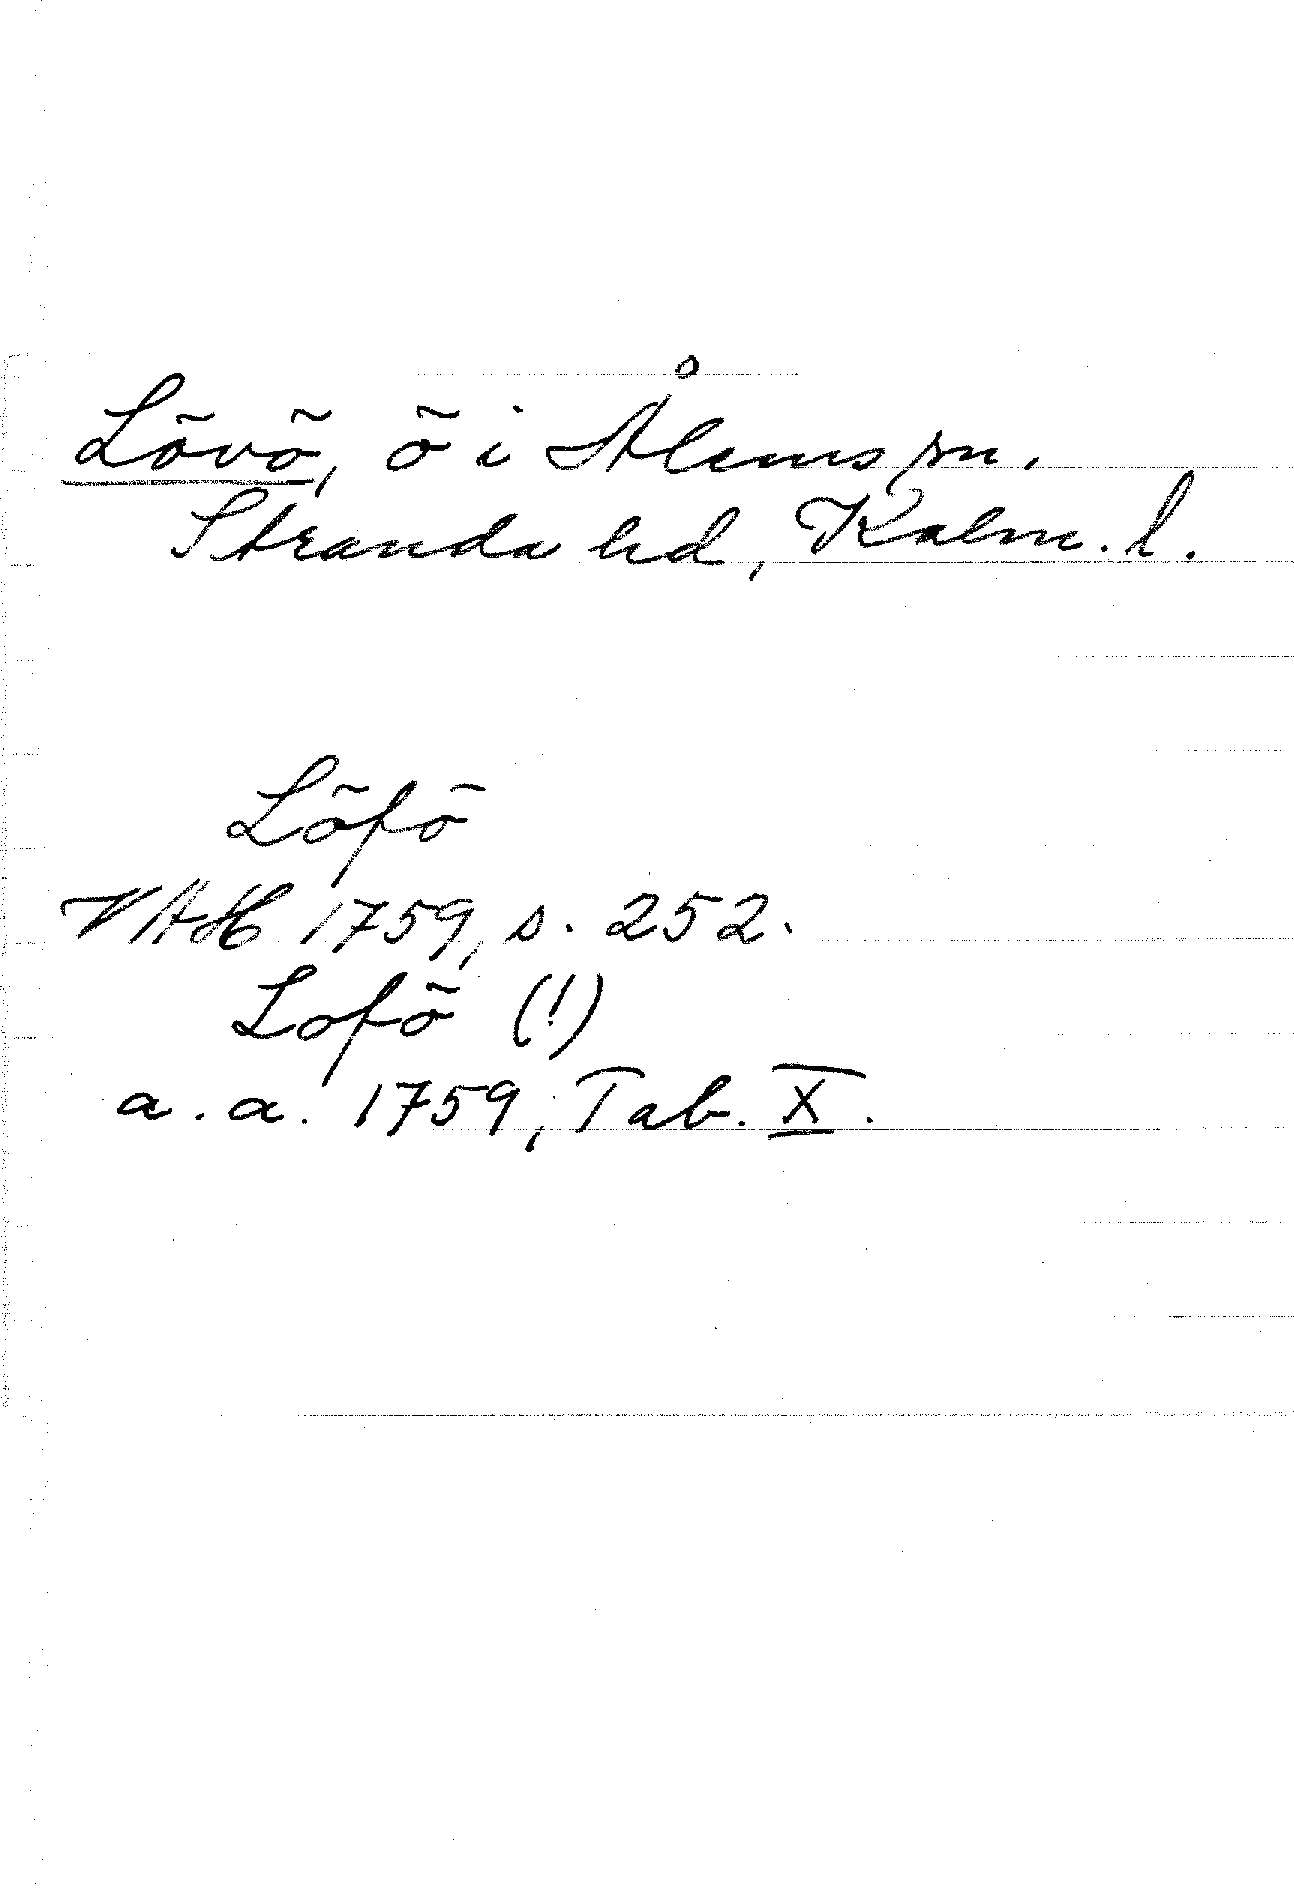 Lövö, ö i Ålems sn.
Stranda hd, Kalm. l.
Löfö
VAH 1759, s. 252.
Lofö (!)
a. a. 1759, Tab. X.